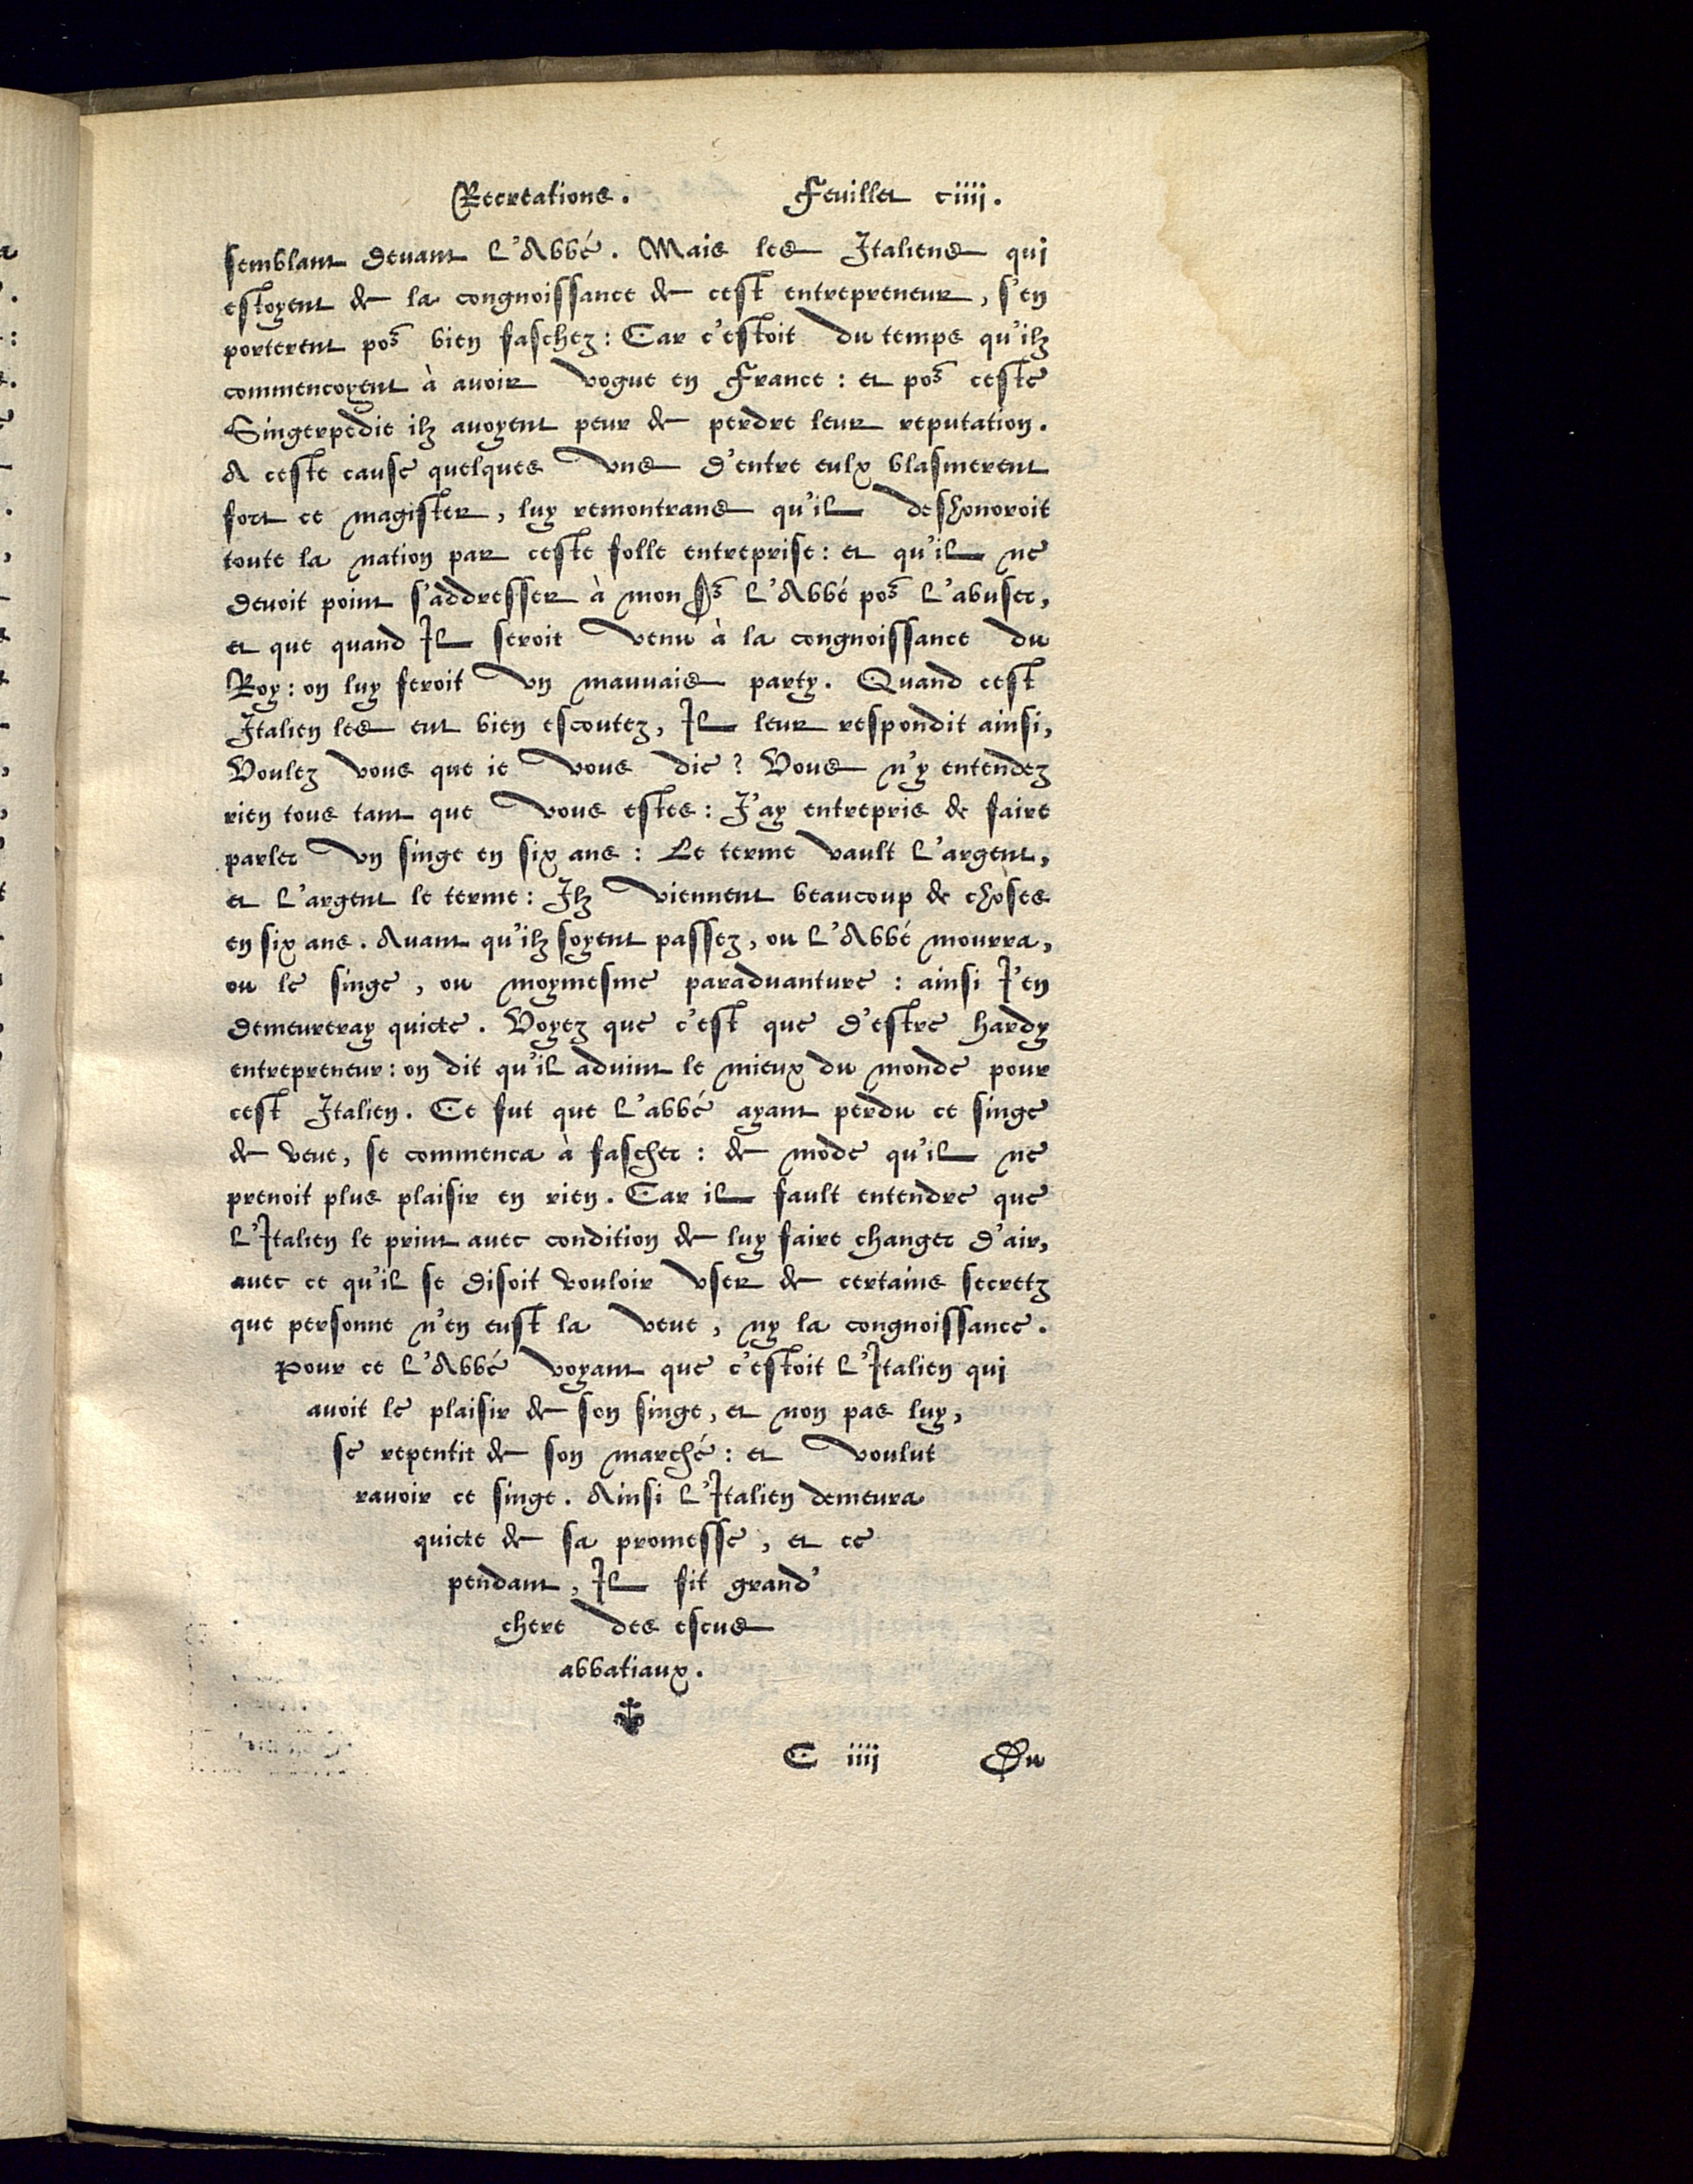 Recreations. Feuillet ciiij.
semblant deuant l'Abbé. Mais les Italiens qui
estoyent de la congnoissance de cest entrepreneur, s'en
porterent poᷣ bien faschez: Car c'estoit du temps qu'ilz
commencoyent à auoir vogue en France: et poᷣ ceste
Singerpedie ilz auoyent peur de perdre leur reputation.
A ceste cause quelques vns d'entre eulx blasmerent
fort ce magister, luy remontrans qu'il deshonoroit
toute la nation par ceste folle entreprise: et qu'il ne
deuoit point s'addresser à mon Sᷣ l'Abbé poᷣ l'abuser,
et que quand Il seroit venu à la congnoissance du
Roy: on luy feroit vn mauuais party. Quand cest
Italien les eut bien escoutez, Il leur respondit ainsi,
Voulez vous que ie vous die? Vous n'y entendez
rien tous tant que vous estes: J'ay entrepris de faire
parler vn singe en six ans: Le terme vault l'argent,
et l'argent le terme: Ilz viennent beaucoup de choses
en six ans. Auant qu'ilz soyent passez, ou l'Abbé mourra,
ou le singe, ou moymesme paraduanture: ainsi J'en
demeureray quicte. Voyez que c'est que d'estre hardy
entrepreneur: on dit qu'il aduint le mieux du monde pour
cest Italien. Ce fut que l'abbé ayant perdu ce singe
de veue, se commenca à fascher: de mode qu'il ne
prenoit plus plaisir en rien. Car il fault entendre que
l'Italien le print auec condition de luy faire changer d'air,
auec ce qu'il se disoit vouloir vser de certains secretz
que personne n'en eust la veue, ny la congnoissance.
Pour ce l'Abbé voyant que c'estoit l'Italien qui
auoit le plaisir de son singe, et non pas luy,
se repentit de son marché: et voulut
rauoir ce singe. Ainsi l'Italien demeura
quicte de sa promesse, et ce
pendant, Il fit grand'
chere des escus
abbatiaux.
C iiij Du